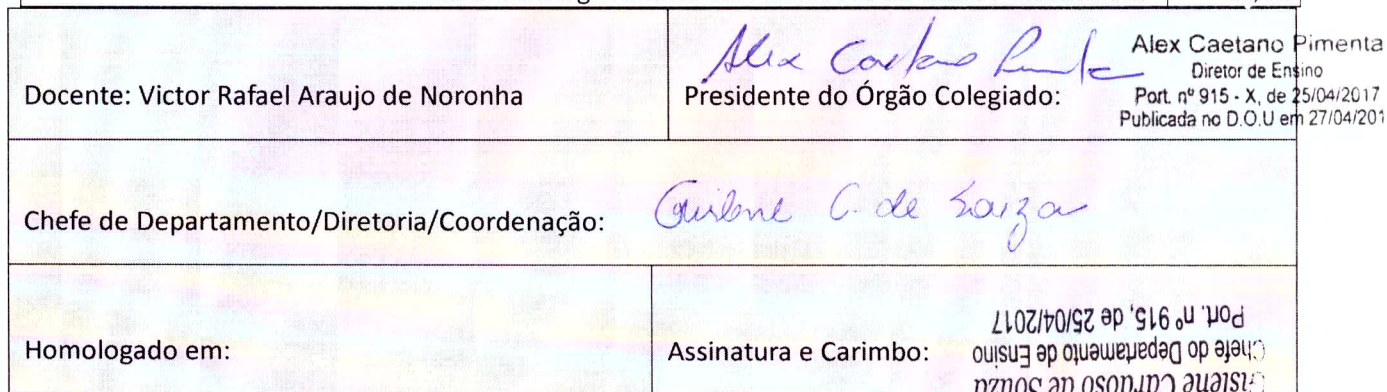 Docente: Victor Rafael Araujo de Noronha
Presidente do Órgão Colegiado:
Alex Caetano Pimenta
Alex Caetano Pimenta
Diretor de Ensino
Port. nº 915 - X, de 25/04/2017
Publicada no D.O.U em 27/04/201
Chefe de Departamento/Diretoria/Coordenação:
Gislene C. de Souza
Homologado em:
Assinatura e Carimbo:
Gislene Cardoso de Souza
Chefe do Departamento de Ensino
Port. nº 915, de 25/04/2017